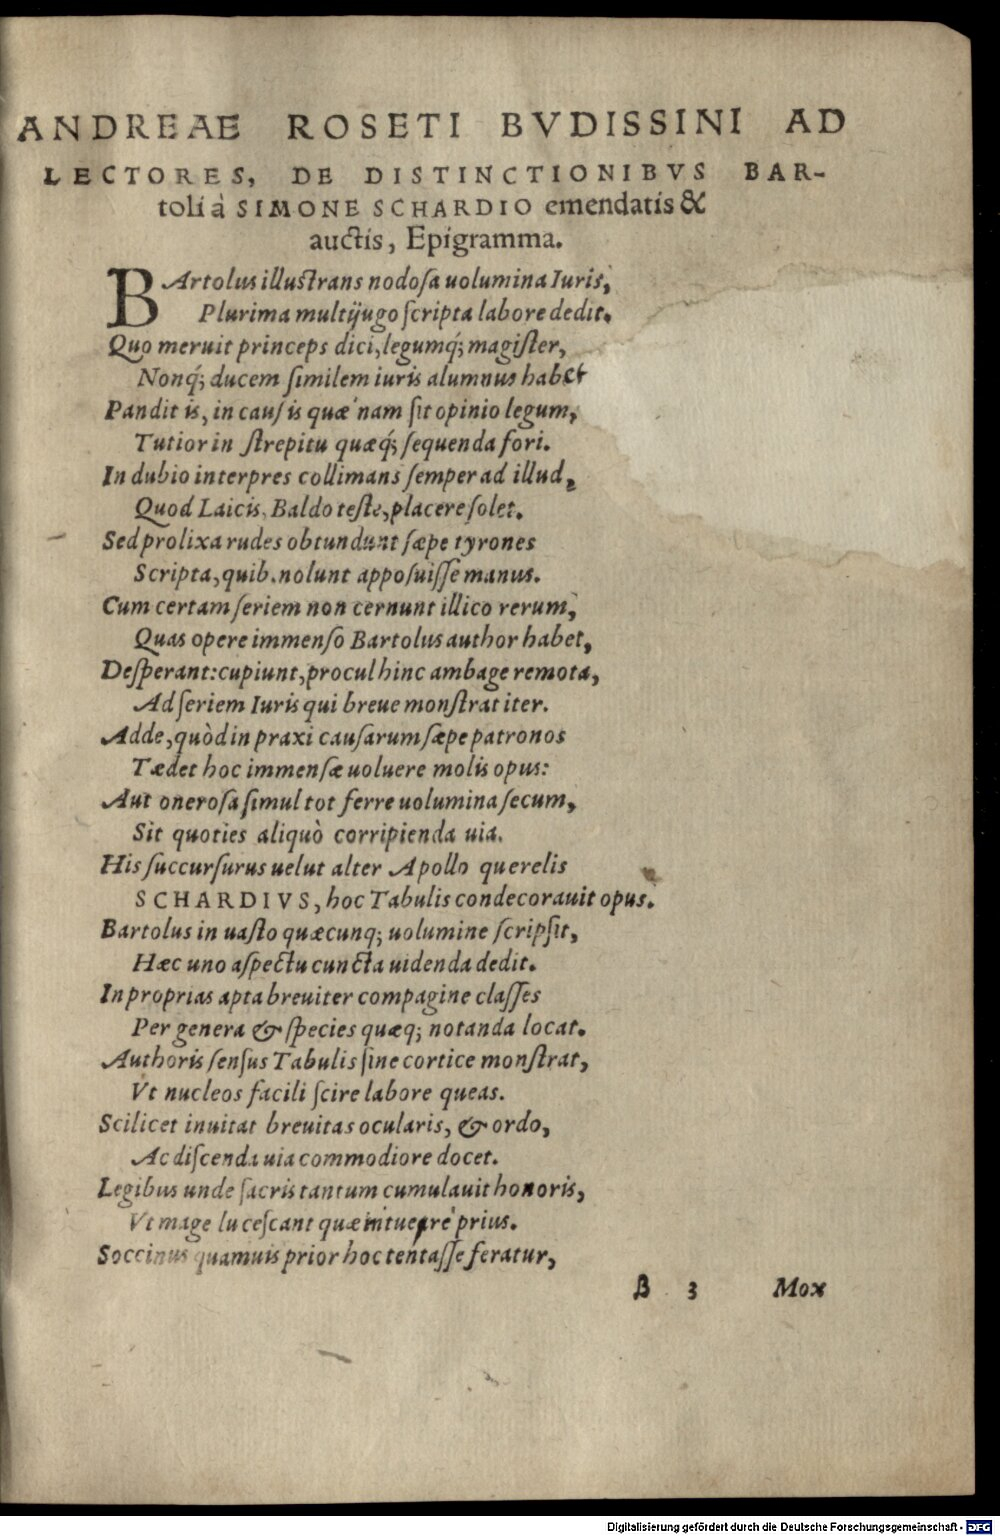 ANDREAE ROSETI BVDISSINI AD
LECTORES, DE DISTINCTIONIBVS BAR-
toli à SIMONE SCHARDIO emendatis &
auctis, Epigramma.
BArtolus illustrans nodoſa uolumina Iuris,
Plurima multijugo ſcripta labore dedit.
Quo meruit princeps dici, legumq́; magiſter,
Nonq́; ducem ſimilem iuris alumnus habet
Pandit is, in cauſis quæ nam ſit opinio legum,
Tutior in ſtrepitu quæq́; ſequenda fori.
In dubio interpres collimans ſemper ad illud,
Quod Laicis, Baldo teſte, placere ſolet.
Sed prolixa rudes obtundunt ſæpe tyrones
Scripta, quib. nolunt appoſuiſſe manus.
Cum certam ſeriem non cernunt illico rerum,
Quas opere immenſo Bartolus author habet,
Deſperant: cupiunt, procul hinc ambage remota,
Ad ſeriem Iuris qui breue monſtrat iter.
Adde, quòd in praxi cauſarum ſæpe patronos
Tædet hoc immenſæ uoluere molis opus:
Aut oneroſa ſimul tot ferre uolumina ſecum,
Sit quoties aliquò corripienda uia.
His ſuccurſurus uelut alter Apollo querelis
SCHARDIVS, hoc Tabulis condecorauit opus.
Bartolus in uaſto quæcunq; uolumine ſcripſit,
Hæc uno aſpectu cuncta uidenda dedit.
In proprias apta breuiter compagine claſſes
Per genera & ſpecies quæq; notanda locat.
Authoris ſenſus Tabulis ſine cortice monſtrat,
Vt nucleos facili ſcire labore queas.
Scilicet inuitat breuitas ocularis, & ordo,
Ac diſcenda uia commodiore docet.
Legibus unde ſacris tantum cumulauit honoris,
Vt mage luceſcant quæ intuere prius.
Soccinus quamuis prior hoc tentaſſe feratur,
β 3 Mox
Digitalisierung gefördert durch die Deutsche Forschungsgemeinschaft - DFG